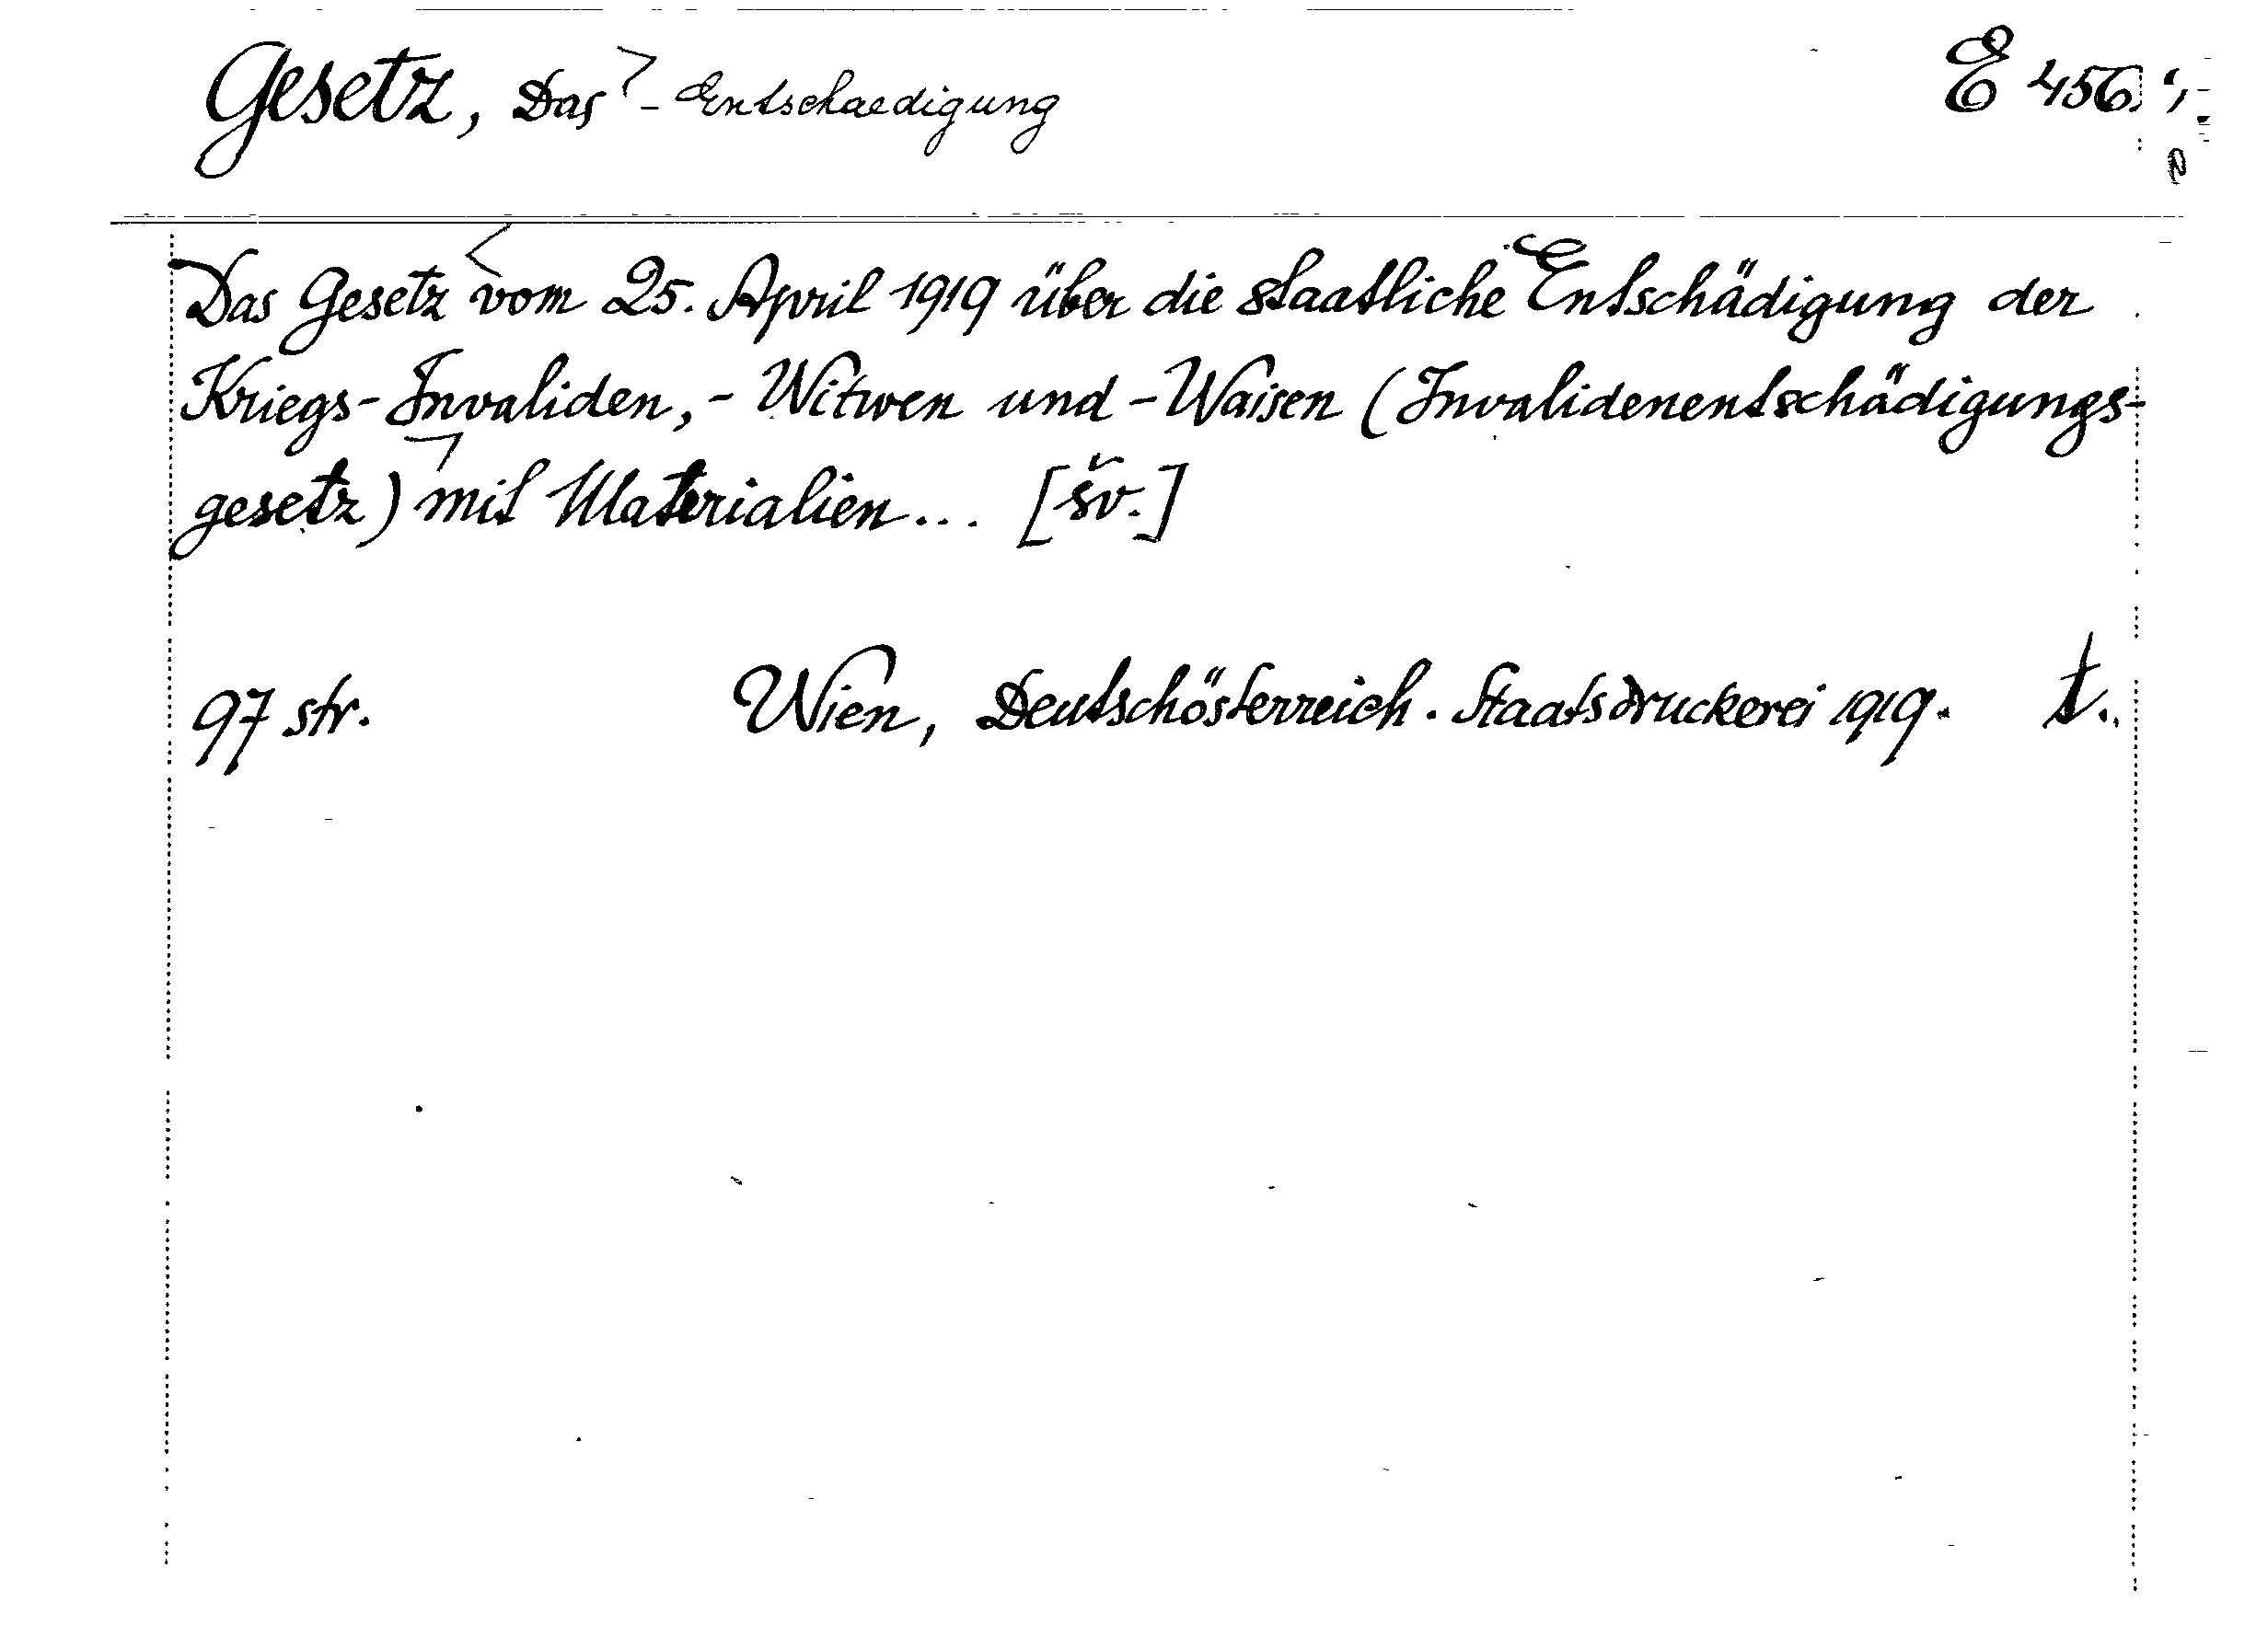 Gesetz, Das - Entschaedigung E 456
Das Gesetz vom 25. April 1919 über die staatliche Entschädigung der
Kriegs-Invaliden, - Witwen und - Waisen (Invalidenentschädigungs-
gesetz) mit Materialien... [šv.]
97 str. Wien, Deutschösterreich. Staatsdruckerei 1919. t.